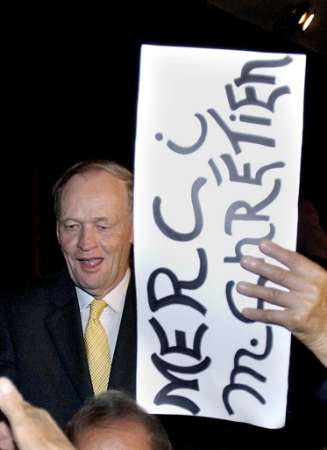 MERCi
M. CHRÉTiEN